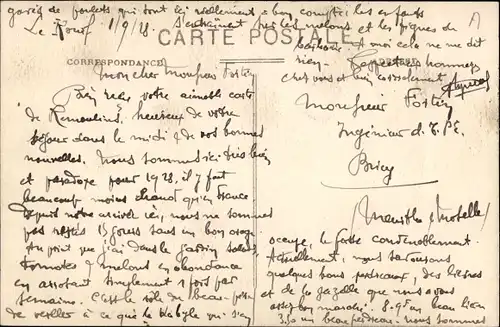 CARTE POSTALE
CORRESPONDANCE
Mon cher Monsieur Fortin
Bien reçu votre aimable carte
de Remoulins, heureux de votre
séjour dans le midi & de vos bonnes
nouvelles. Nous sommes ici très bien
et paradoxe pour 1928, il y fait
beaucoup moins chaud qu'en France
depuis notre arrivée ici, nous ne sommes
pas restés 15 jours sans un bon orage
au point que j'ai dans le jardin salades,
tomates & melons en abondance
en arrosant simplement 1 fois par
semaine. C'est le rôle du beau-père
de veiller à ce que le Kabyle qui s'en
occupe, le fasse convenablement.
Actuellement, nous savourons
quelques bons perdreaux, des lièvres
et de la gazelle que nous avons
assez bon marché.
un beau perdreau. Nous sommes
gavés de poulets qui sont ici réellement à bon compte; les enfants
Le Kouif 1/9/28. s'entraînent sur les melons et les figues de
Barbarie. A moi cela ne me dit
rien.
chez vous et bien cordialement
Monsieur Fortin
Ingénieur d. T.P.E.
Briey
Meurthe & Moselle